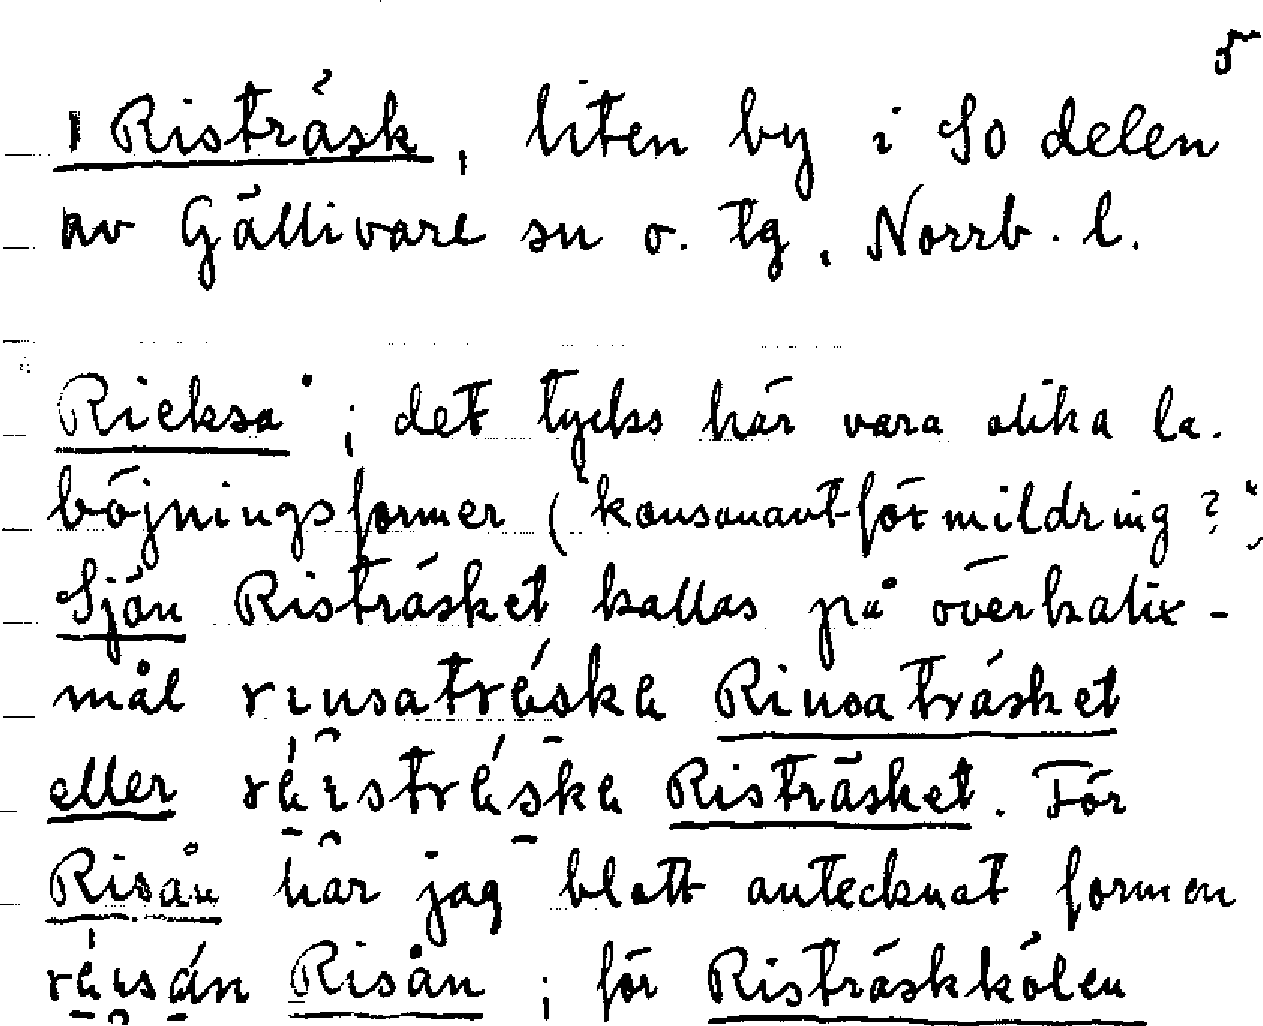 5
1 Risträsk, liten by i So delen
av Gällivare sn o. tg, Norrb. l.
Rickså; det tycks här vara olika la.
böjningsformer ("konsonantförmildring?"
Sjön Risträsket kallas på överkalix-
mål Rinsaträsket
eller Risträsket. För
Risån har jag blott antecknat formen
Risån; för Risträskkölen